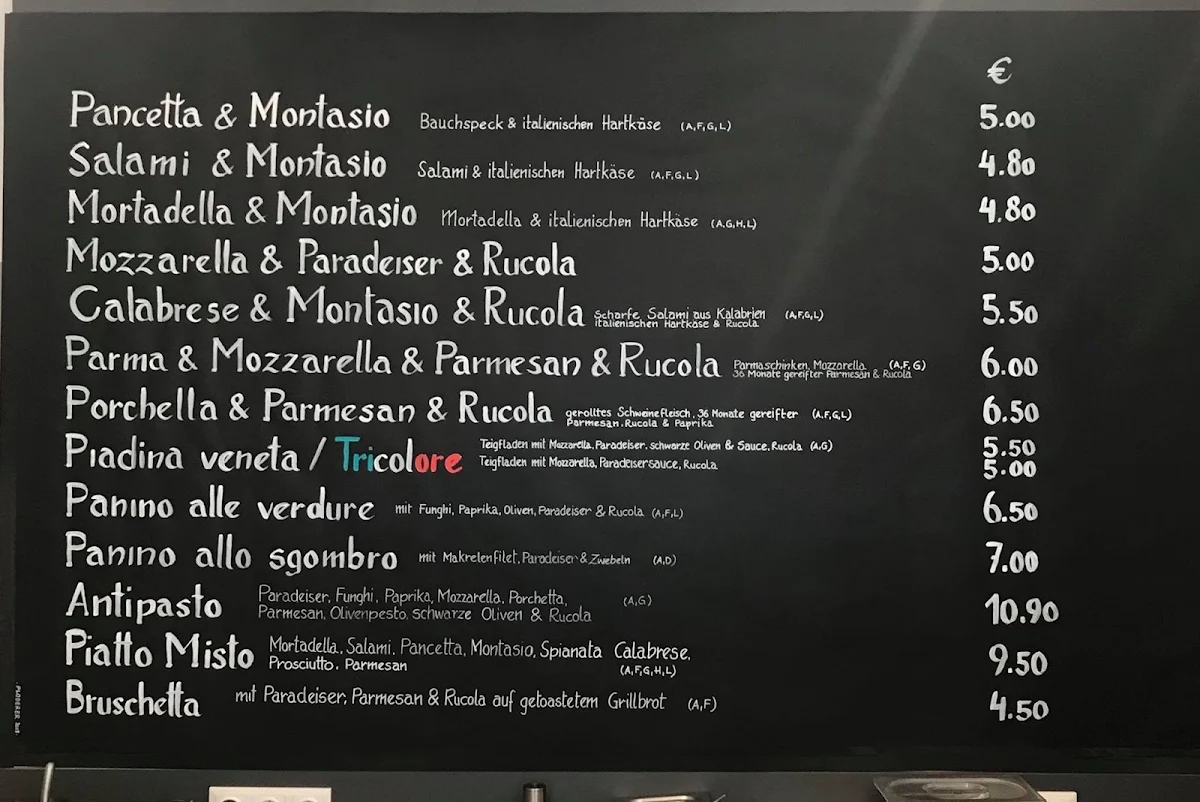 €
Pancetta & Montasio Bauchspeck & italienischen Hartkäse (A,F,G,L) 5.00
Salami & Montasio Salami & italienischen Hartkäse (A,F,G,L) 4.80
Mortadella & Montasio Mortadella & italienischen Hartkäse (A,G,H,L) 4.80
Mozzarella & Paradeiser & Rucola 5.00
Calabrese & Montasio & Rucola Scharfe Salami aus Kalabrien (A,F,G,L) 5.50
italienischen Hartkäse & Rucola
Parma & Mozzarella & Parmesan & Rucola Parmaschinken, Mozzarella (A,F,G) 6.00
36 Monate gereifter Parmesan & Rucola
Porchella & Parmesan & Rucola gerolltes Schweinefleisch, 36 Monate gereifter (A,F,G,L) 6.50
Parmesan, Rucola & Paprika
Piadina veneta / Tricolore Teigfladen mit Mozzarella, Paradeiser, schwarze Oliven & Sauce, Rucola (A,G) 5.50
Teigfladen mit Mozzarella, Paradeisersauce, Rucola 5.00
Panino alle verdure mit Funghi, Paprika, Oliven, Paradeiser & Rucola (A,F,L) 6.50
Panino allo sgombro mit Makrelenfilet, Paradeiser & Zwiebeln (A,D) 7.00
Antipasto Paradeiser, Funghi, Paprika, Mozzarella, Porchetta, (A,G) 10.90
Parmesan, Olivenpesto, schwarze Oliven & Rucola
Piatto Misto Mortadella, Salami, Pancetta, Montasio, Spianata Calabrese, 9.50
Prosciutto, Parmesan (A,F,G,H,L)
Bruschetta mit Paradeiser, Parmesan & Rucola auf getoastetem Grillbrot (A,F) 4.50